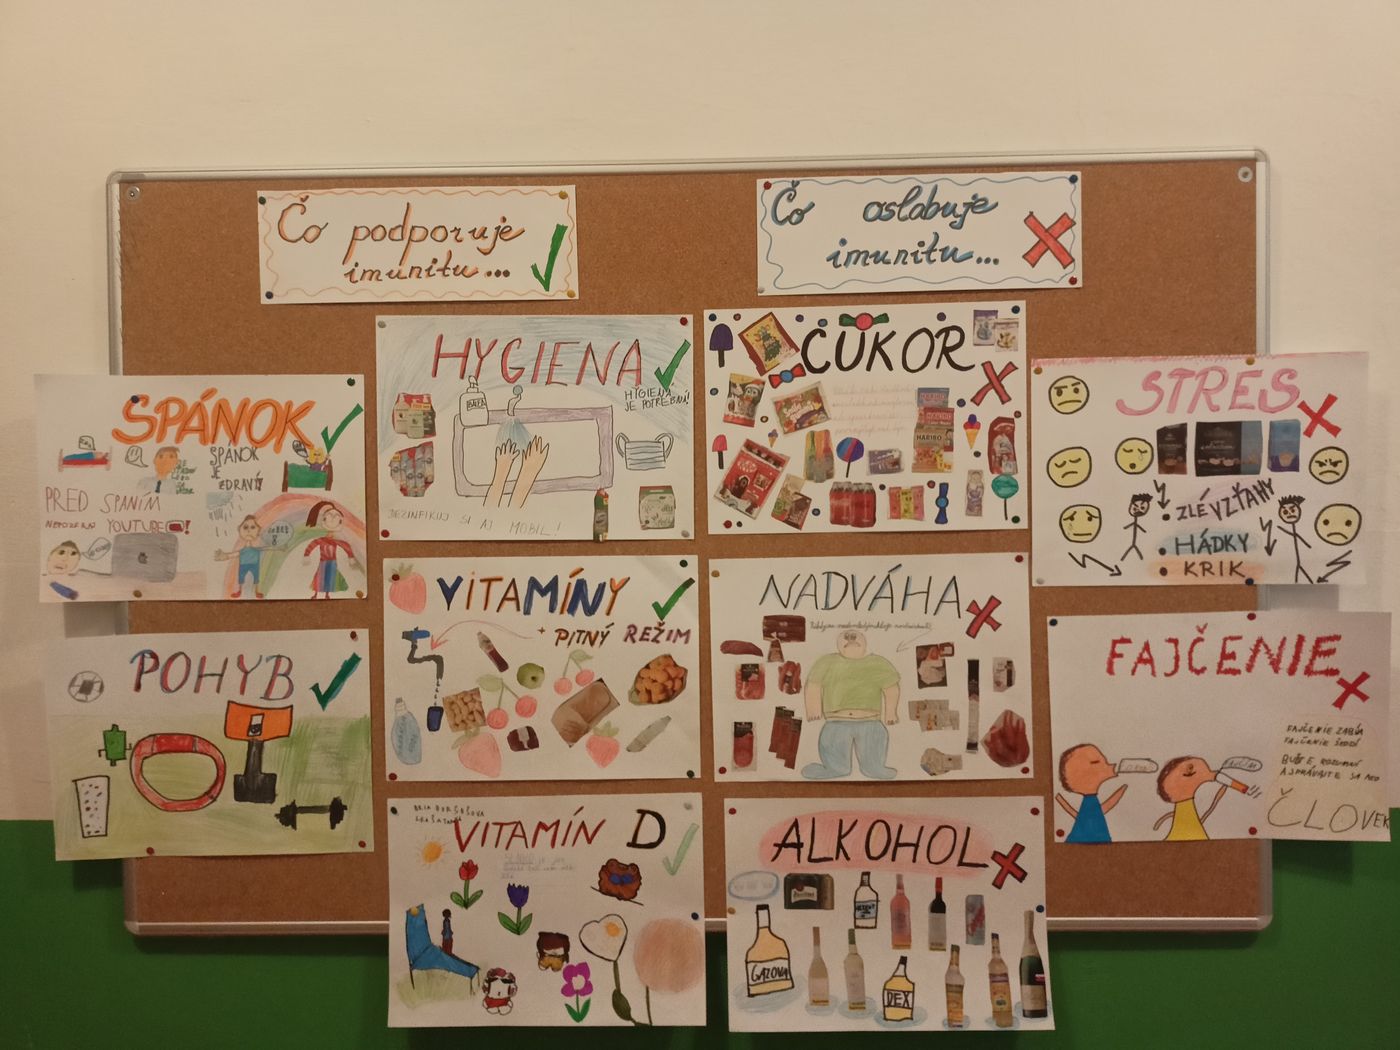 Čo podporuje
imunitu...
Čo oslabuje
imunitu...
SPÁNOK
SPÁNOK
JE
ZDRAVÝ
PRED SPANÍM
YOUTUBE
HYGIENA
HYGIENA
JE POTREBNÁ!
DEZINFIKUJ SI AJ MOBIL!
CUKOR
HARIBO
HARIBO
STRES
ZLÉ VZŤAHY
HÁDKY
KRIK
POHYB
VITAMÍNY
+ PITNÝ REŽIM
NADVÁHA
FAJČENIE
FAJČENIE ZABÍJA
FAJČENIE ŠKODÍ
BUĎTE ROZUMNÍ
A SPRÁVAJTE SA AKO
ČLOVEK
VITAMÍN D
ALKOHOL
GAZOVA
DEX